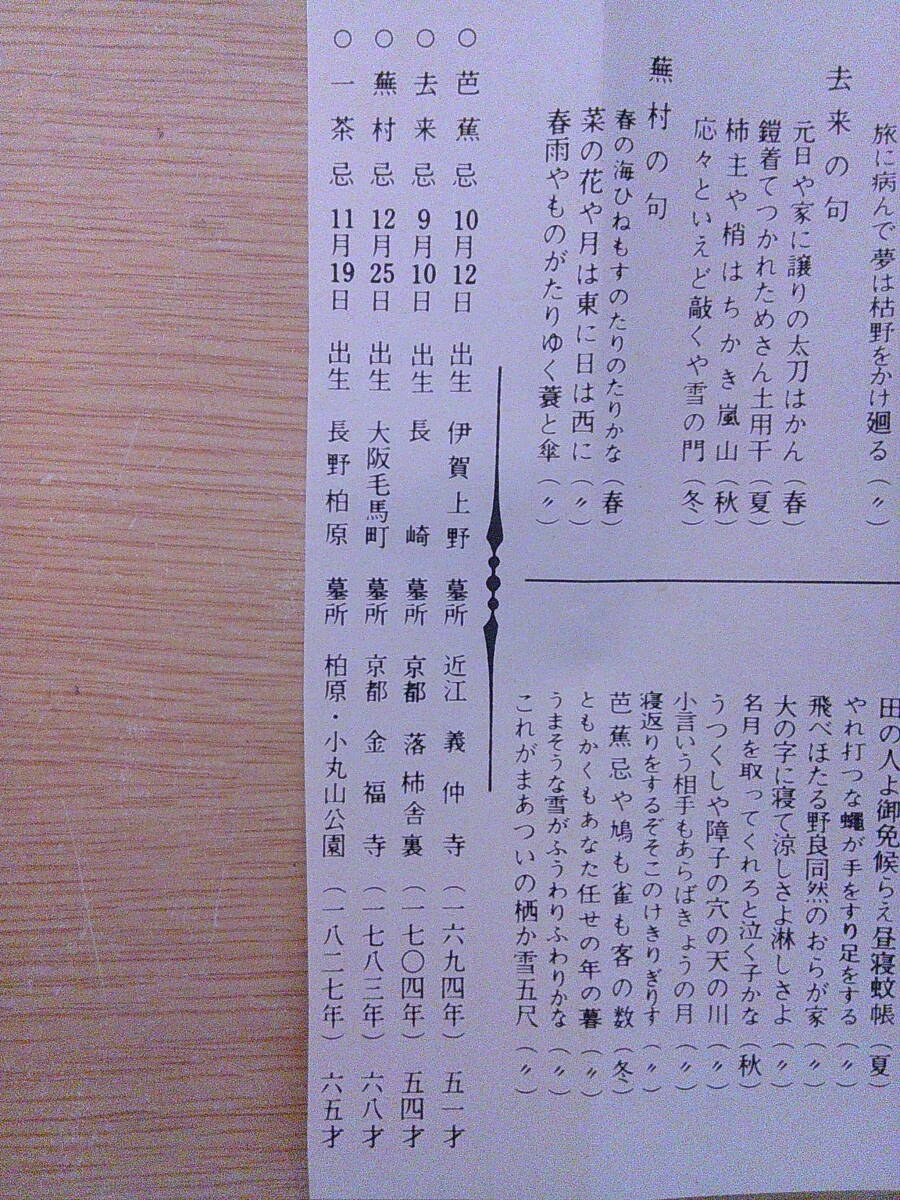 旅に病んで夢は枯野をかけ廻る(〃)
去来の句
元日や家に譲りの太刀はかん(春)
鎧着てつかれためさん土用干(夏)
柿主や梢はちかき嵐山(秋)
応々といえど敲くや雪の門(冬)
蕪村の句
春の海ひねもすのたりのたりかな(春)
菜の花や月は東に日は西に(〃)
春雨やものがたりゆく蓑と傘(〃)
田の人よ御免候らえ昼寝蚊帳(夏)
やれ打つな蠅が手をすり足をする(〃)
飛べほたる野良同然のおらが家(〃)
大の字に寝て涼しさよ淋しさよ(〃)
名月を取ってくれろと泣く子かな(秋)
うつくしや障子の穴の天の川(〃)
小言いう相手もあらばきょうの月(〃)
寝返りをするぞそこのけきりぎりす(〃)
芭蕉忌や鳩も雀も客の数(冬)
ともかくもあなた任せの年の暮(〃)
うまそうな雪がふうわりふわりかな(〃)
これがまあついの栖か雪五尺(〃)
○芭蕉忌 10月12日 出生 伊賀上野 墓所 近江 義仲寺(一六九四年)五一才
○去来忌 9月10日 出生 長崎 墓所 京都 落柿舎裏(一七〇四年)五四才
○蕪村忌 12月25日 出生 大阪毛馬町 墓所 京都 金福寺(一七八三年)六八才
○一茶忌 11月19日 出生 長野柏原 墓所 柏原・小丸山公園(一八二七年)六五才